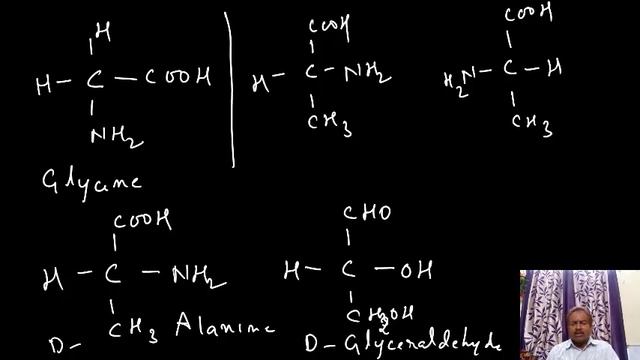 H
H – C – COOH
NH2
Glycine
COOH
H – C – NH2
CH3
COOH
H2N – C – H
CH3
COOH
H – C – NH2
CH3
D – Alanine
CHO
H – C – OH
CH2OH
D – Glyceraldehyde